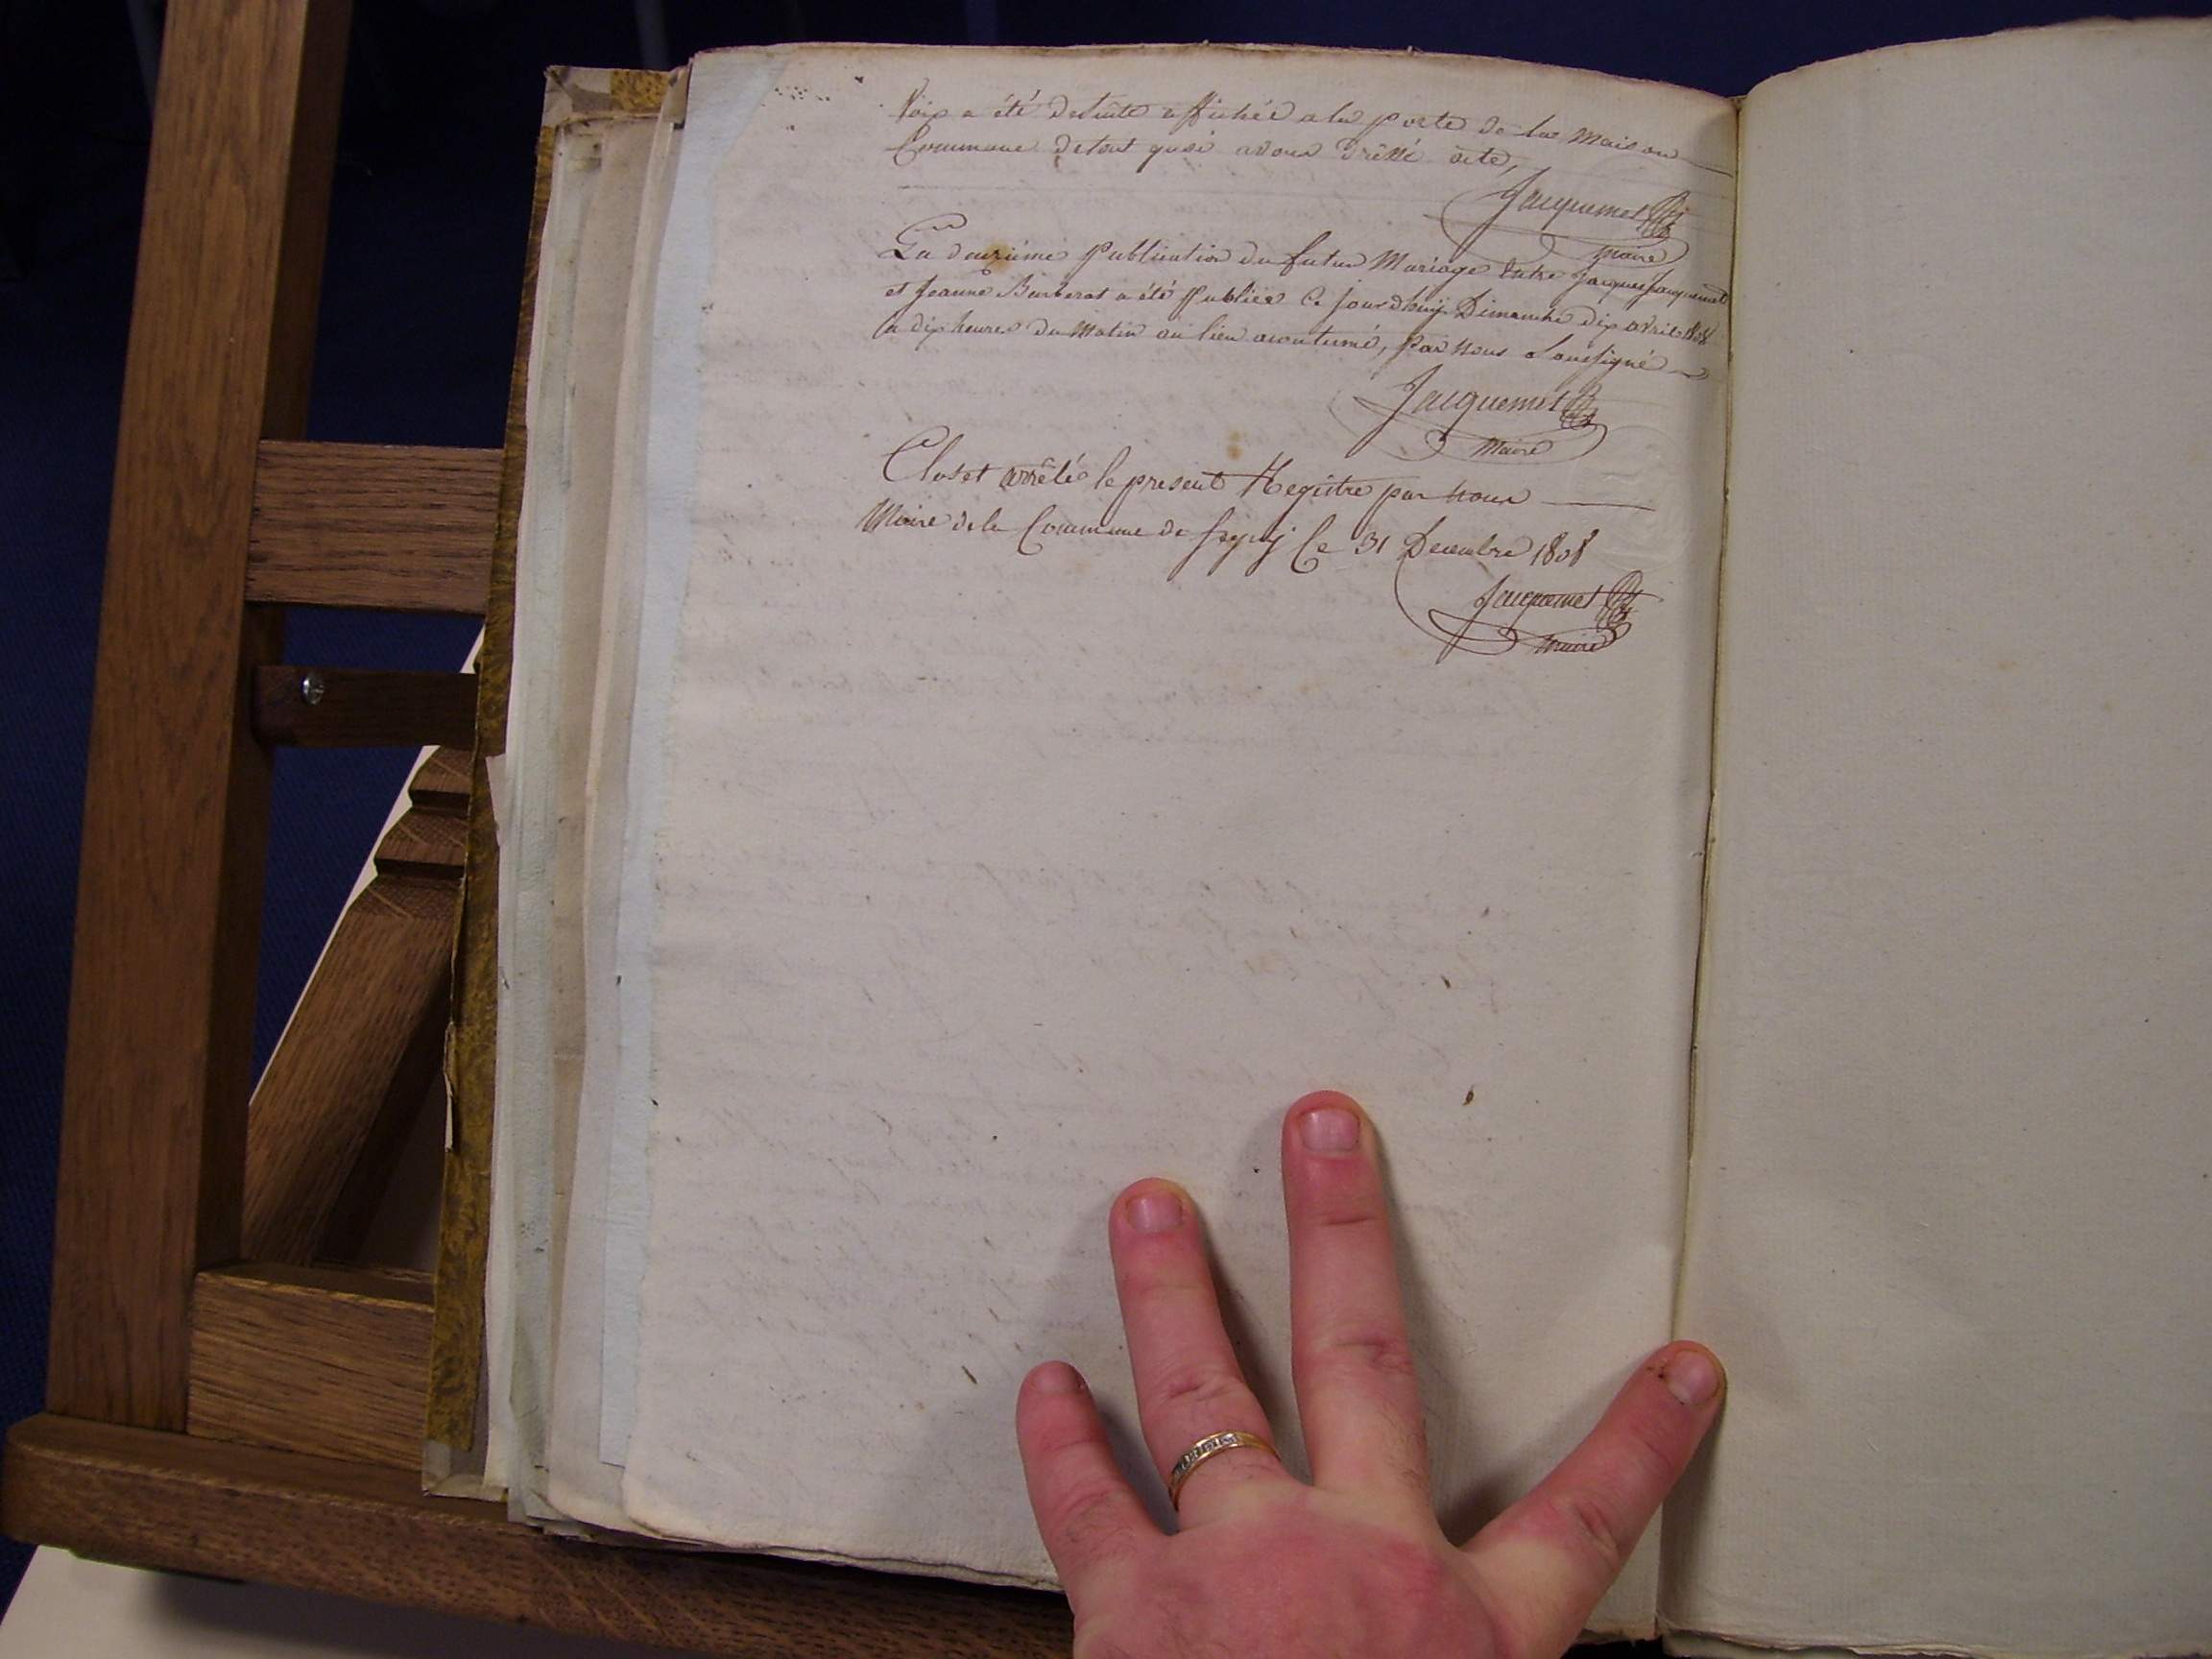 Voix a été de suite affichée a la porte de la Maison
Commune de tout quoi avons Dressé acte,
Jacquemet
Maire
La deuxième Publication du futur Mariage Entre Jacques Jacquemet
et Jeanne Barberat a été Publiée Ce jourdhuy Dimanche dix avril 1808
a dix heures du Matin au lieu acoutumé, par Nous Soussigné
Jacquemet
Maire
Clos et arrêté le present Registre par nous
Maire de la Commune de Segny Ce 31 Decembre 1808
Jacquemet
Maire